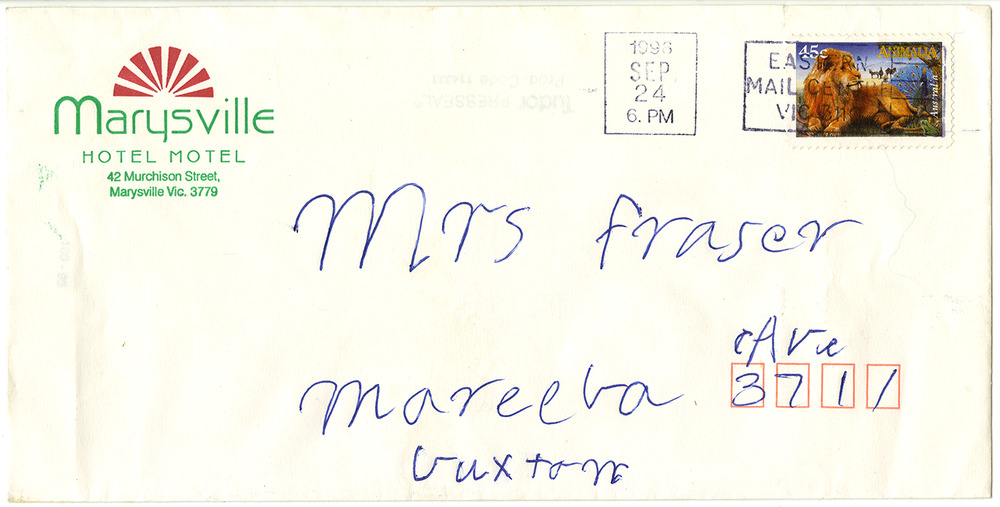 Marysville
HOTEL MOTEL
42 Murchison Street,
Marysville Vic. 3779
1996
SEP
24
6. PM
EASTERN
MAIL CENTRE
VIC
45c
ANIMALIA
Australia
Tudor PRESSEAL®
Prod. Code
Mrs Fraser
Ave
Mareeba 3711
buxton